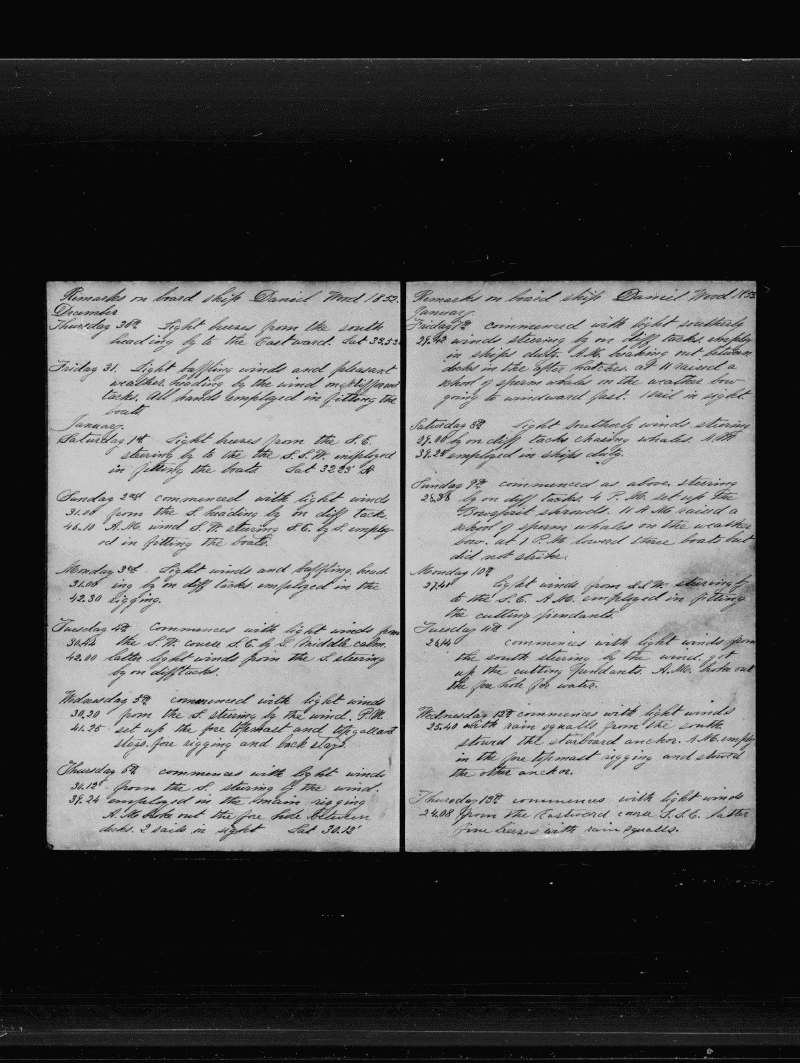 Remarks on board ship Daniel Wood 1853.
December
Thursday 30th Light breezes from the south
heading by to the Eastward. Lat 32.53
Friday 31. Light baffling winds and pleasant
weather. heading by the wind on different
tacks. All hands employed in fitting the
boats
January.
Saturday 1st Light breezes from the S.E.
steering by to the the S.S.W. employed
in fitting the boats Lat 32 23' S
Sunday 2nd commenced with light winds
31.08 from the S. heading by on diff tack.
46.10 A.M. wind S.W. steering S.E. by S. employ
ed in fitting the boats.
Monday 3rd. Light winds and baffling, head
31.06 ing by on diff tacks employed in the
42.30 rigging.
Tuesday 4th commences with light winds from
30.44 the S.W. course S.E. by S. Middle calm.
42.00 latter light winds from the S. steering
by on diff tacks.
Wednesday 5th commenced with light winds
30.20 from the S. steering by the wind. P.M.
41.25 set up the fore topmast and topgallant
stays. fore rigging and back stays.
Thursday 6th commences with light winds
30.12 from the S. steering by the wind.
39.24 employed in the main rigging
A.M. broke out the fore hole between
decks. 2 sails in sight Lat 30.12'
Remarks on board ship Daniel Wood 1853
January.
Friday 7th. commenced with light southerly
29.42 winds steering by on diff tacks employ
in ships duty. A.M. breaking out between
decks in the after hatches. at 11 raised a
school of sperm whales on the weather bow
going to windward fast. 1 sail in sight
Saturday 8th Light southerly winds steering
29.00 by on diff tacks chasing whales. A.M.
39.28 employed in ships duty.
Sunday 9th commenced as above, steering
28.38 by on diff tacks. 4 P.M. set up the
Bowsprit shrouds. 11 A.M. raised a
school of sperm whales on the weather
bow. at 1 P.M. lowered three boats but
did not strike.
Monday 10th
27.41 light winds from S.S.W. steering by
to the S.E. A.M. employed in fitting
the cutting pendants.
Tuesday 11th
26.14 commences with light winds from
the south steering by the wind. got
up the cutting pendants. A.M. broke out
the fore hole for water.
Wednesday 12th commences with light winds
25.40 with rain squalls from the south
stowd the starboard anchor. A.M. employ
in the fore topmast rigging and stowd
the other anchor.
Thursday 13th commences with light winds
24.08 from the Eastward course S.S.E. Latter
fine breezes with rain squalls.